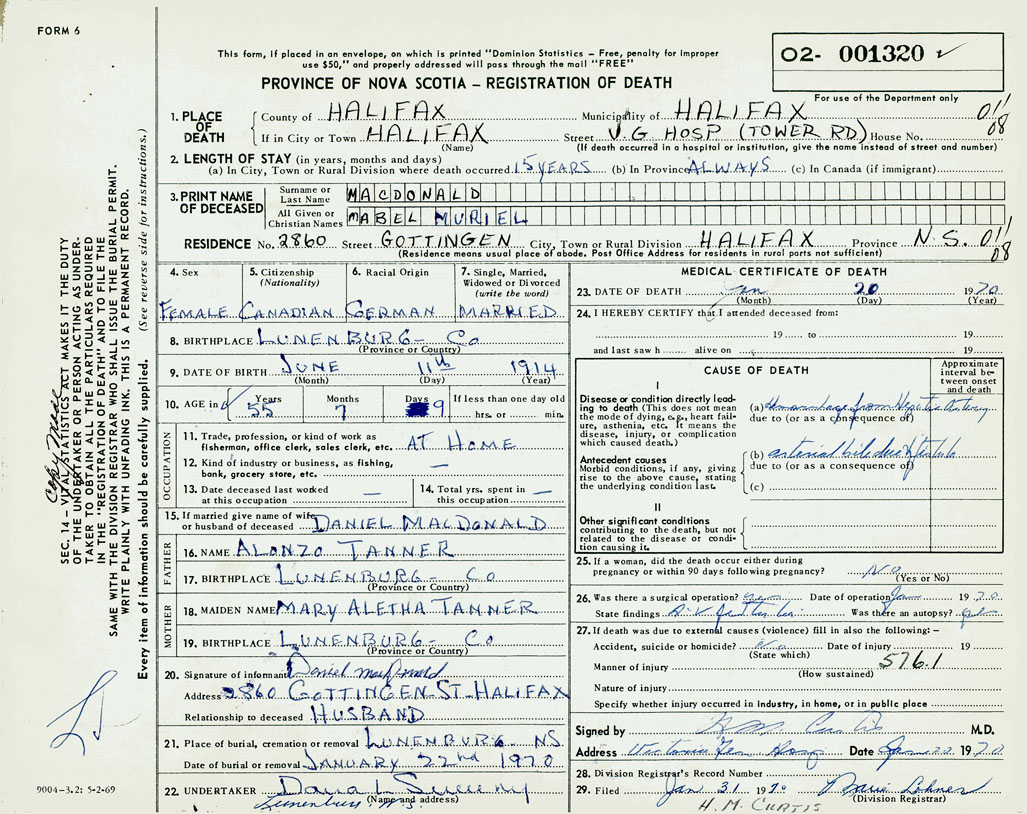 FORM 6
This form, if placed in an envelope, on which is printed "Dominion Statistics – Free, penalty for improper
use $50," and properly addressed will pass through the mail "FREE"
PROVINCE OF NOVA SCOTIA – REGISTRATION OF DEATH
02- 001320
For use of the Department only
SEC. 14 – VITAL STATISTICS ACT MAKES IT THE DUTY
OF THE UNDERTAKER OR PERSON ACTING AS UNDER-
TAKER TO OBTAIN ALL THE PARTICULARS REQUIRED
IN THE "REGISTRATION OF DEATH" AND TO FILE THE
SAME WITH THE DIVISION REGISTRAR WHO SHALL ISSUE THE BURIAL PERMIT.
WRITE PLAINLY WITH UNFADING INK. THIS IS A PERMANENT RECORD.
Every item of information should be carefully supplied. (See reverse side for instructions.)
1. PLACE OF DEATH
County of HALIFAX Municipality of HALIFAX 01'
If in City or Town HALIFAX Street V.G HOSP (TOWER RD) House No. 08
(Name) (If death occurred in a hospital or institution, give the name instead of street and number)
2. LENGTH OF STAY (in years, months and days)
(a) In City, Town or Rural Division where death occurred 15 YEARS (b) In Province ALWAYS (c) In Canada (if immigrant)
3. PRINT NAME OF DECEASED
Surname or Last Name MACDONALD
All Given or Christian Names MABEL MURIEL
RESIDENCE No. 2860 Street GOTTINGEN City, Town or Rural Division HALIFAX Province N.S. 01'
(Residence means usual place of abode. Post Office Address for residents in rural parts not sufficient) 08
4. Sex 5. Citizenship (Nationality) 6. Racial Origin 7. Single, Married, Widowed or Divorced (write the word)
FEMALE CANADIAN GERMAN MARRIED
8. BIRTHPLACE LUNENBURG- CO
(Province or Country)
9. DATE OF BIRTH JUNE 11th 1914
(Month) (Day) (Year)
10. AGE in Years Months Days If less than one day old
55 7 9 hrs. or min.
OCCUPATION
11. Trade, profession, or kind of work as
fisherman, office clerk, sales clerk, etc. AT HOME
12. Kind of industry or business, as fishing,
bank, grocery store, etc. —
13. Date deceased last worked at this occupation — 14. Total yrs. spent in this occupation —
15. If married give name of wife
or husband of deceased DANIEL MACDONALD
FATHER
16. NAME ALONZO TANNER
17. BIRTHPLACE LUNENBURG- CO
(Province or Country)
MOTHER
18. MAIDEN NAME MARY ALETHA TANNER
19. BIRTHPLACE LUNENBURG- CO
(Province or Country)
20. Signature of informant Daniel MacDonald
Address 2860 GOTTINGEN ST. HALIFAX
Relationship to deceased HUSBAND
21. Place of burial, cremation or removal LUNENBURG. NS
Date of burial or removal JANUARY 22nd 1970
22. UNDERTAKER Dana L Sweeny
(Name and address)
Lunenburg, N.S.
9004-3.2: 5-2-69
MEDICAL CERTIFICATE OF DEATH
23. DATE OF DEATH Jan 20 1970
(Month) (Day) (Year)
24. I HEREBY CERTIFY that I attended deceased from:
19 to 19
and last saw h alive on 19
CAUSE OF DEATH
Approximate interval between onset and death
I
Disease or condition directly lead-
ing to death (This does not mean
the mode of dying, e.g., heart fail-
ure, asthenia, etc. It means the
disease, injury, or complication
which caused death.)
(a) Hemorrhage from Hepatic Artery
due to (or as a consequence of)
Antecedent causes
Morbid conditions, if any, giving
rise to the above cause, stating
the underlying condition last.
(b) arterial bile duct fistula
due to (or as a consequence of)
(c)
II
Other significant conditions
contributing to the death, but not
related to the disease or condi-
tion causing it.
25. If a woman, did the death occur either during
pregnancy or within 90 days following pregnancy? No
(Yes or No)
26. Was there a surgical operation? yes Date of operation Jan 1970
State findings Was there an autopsy? yes
27. If death was due to external causes (violence) fill in also the following:–
Accident, suicide or homicide? No Date of injury 19
(State which)
Manner of injury 576.1
(How sustained)
Nature of injury
Specify whether injury occurred in industry, in home, or in public place
Signed by H M Curtis M.D.
Address Victoria Gen Hosp Date Jan 22 1970
28. Division Registrar's Record Number
29. Filed Jan 31 1970 Marie Lohnes
(Division Registrar)
H.M. CURTIS